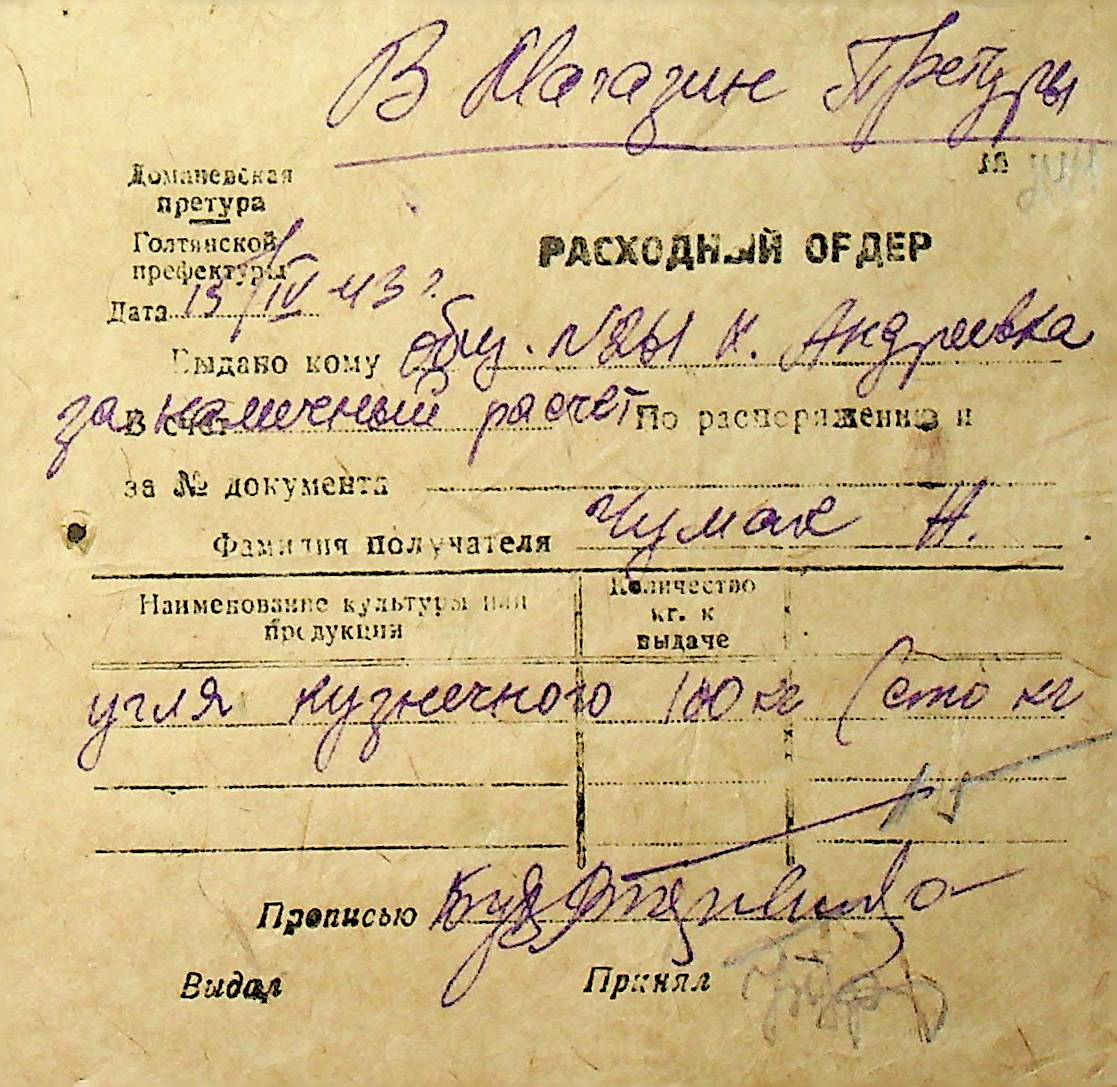 В Магазин Претуры
№
Доманевская
претура
Голтянской
префектуры
РАСХОДНЫЙ ОРДЕР
Дата 15/IV 43 г.
Выдано кому общ. Н. Андреевка
В счет за наличный расчет По распоряжению и
за № документа
Фамилия получателя Чумак Н.
Наименование культуры или продукции
Количество кг. к выдаче
угля кузнечного 100 кг (сто кг
Прописью
Выдал Принял